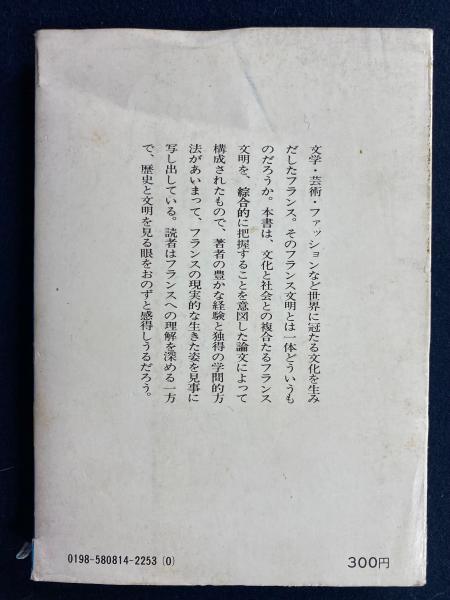 文学・芸術・ファッションなど世界に冠たる文化を生み
だしたフランス。そのフランス文明とは一体どういうも
のだろうか。本書は、文化と社会との複合たるフランス
文明を、綜合的に把握することを意図した論文によって
構成されたもので、著者の豊かな経験と独得の学問的方
法があいまって、フランスの現実的な生きた姿を見事に
写し出している。読者はフランスへの理解を深める一方
で、歴史と文明を見る眼をおのずと感得しうるだろう。
0198-580814-2253(0)
300円